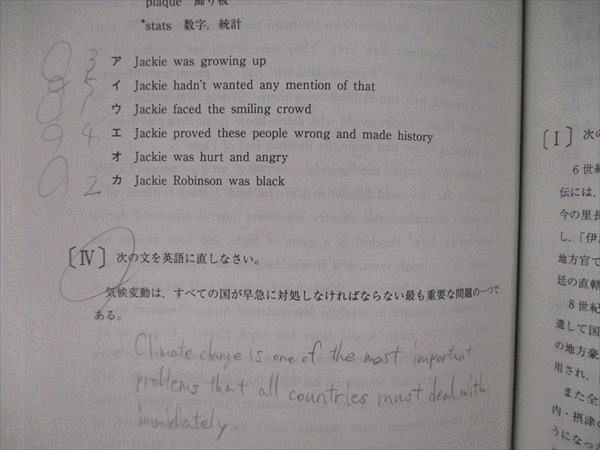 plaque 飾り板
*stats 数字，統計
3 ア Jackie was growing up
5 イ Jackie hadn't wanted any mention of that
1 ウ Jackie faced the smiling crowd
4 エ Jackie proved these people wrong and made history
オ Jackie was hurt and angry
2 カ Jackie Robinson was black
〔Ⅳ〕 次の文を英語に直しなさい。
気候変動は，すべての国が早急に対処しなければならない最も重要な問題の一つで
ある。
Climate change is one of the most important
problems that all countries must deal with
immidiately
〔Ⅰ〕 次の
6世紀
伝には，
今の里長
し，「伊
地方官で
廷の直轄
8世紀
遣して国
の地方豪
用され，
また全
内・摂津
うになっ